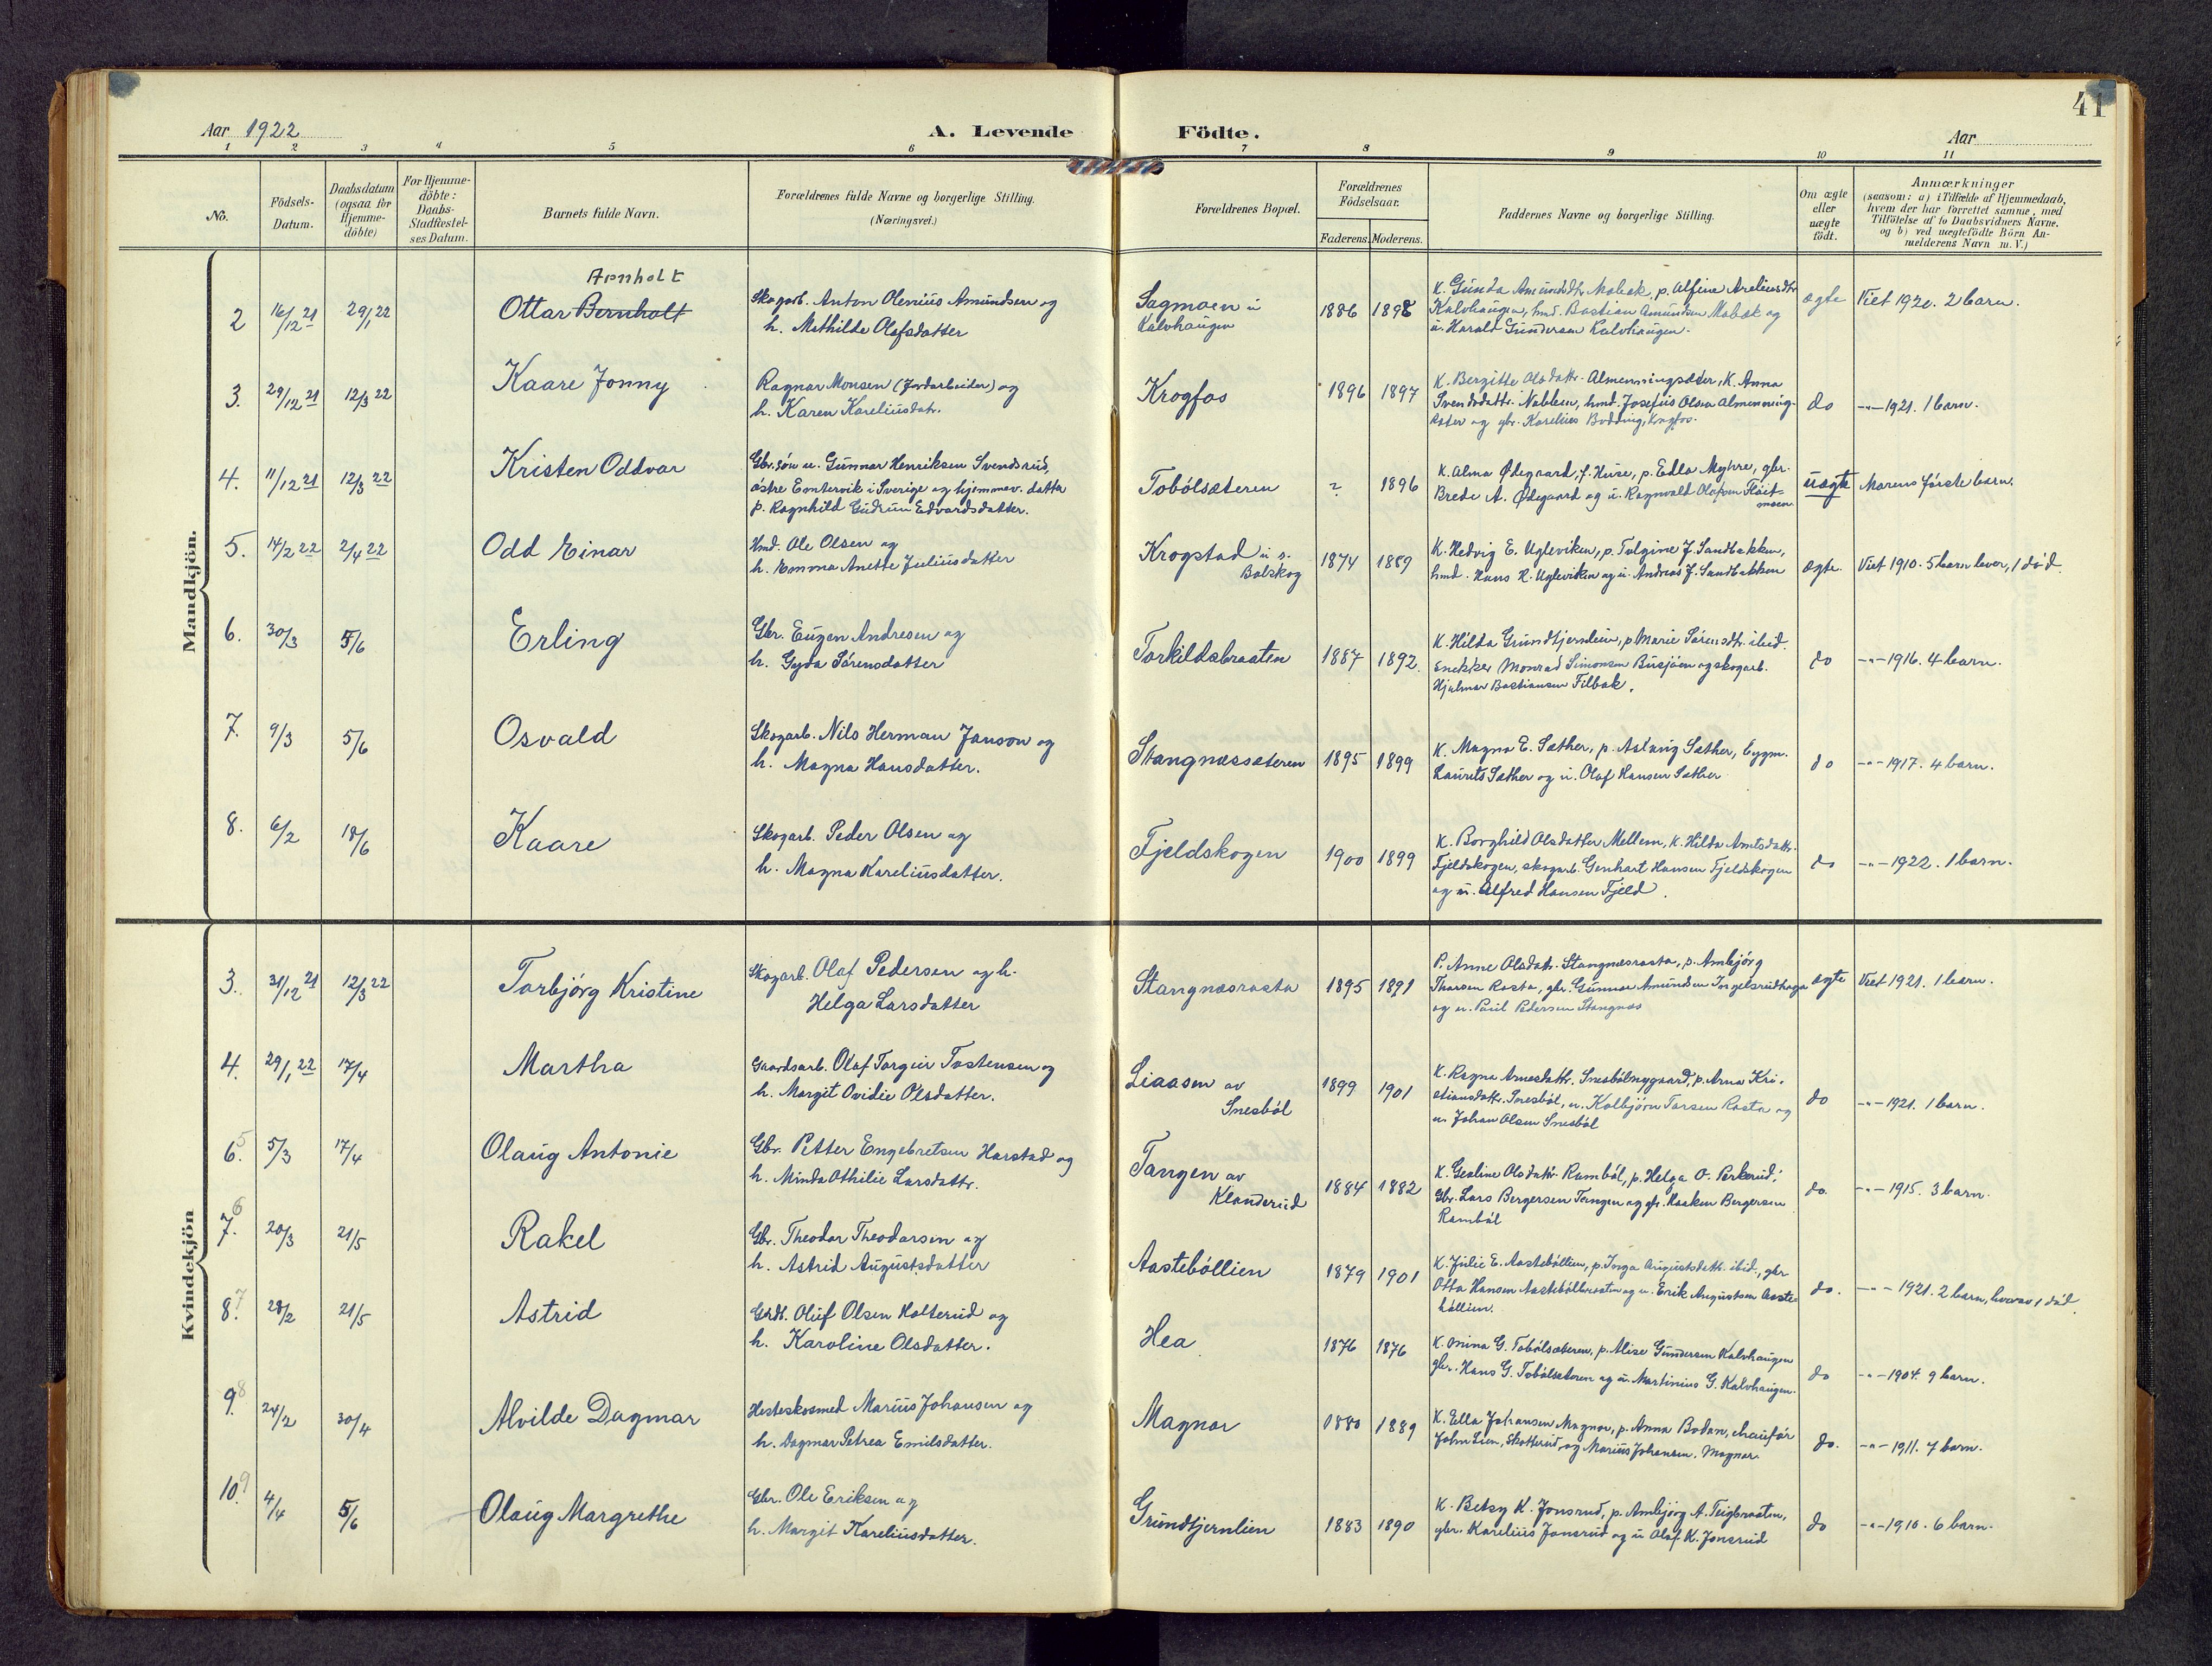 41
Aar 1922
A. Levende Födte.
Aar
1 2 3 4 5 6 7 8 9 10 11
No.
Födsels-
Datum.
Daabsdatum
(ogsaa for
Hjemme-
döbte)
For Hjemme-
döbte:
Daabs-
Stadfæstel-
ses Datum.
Barnets fulde Navn.
Forældrenes fulde Navne og borgerlige Stilling.
(Næringsvei.)
Forældrenes Bopæl.
Forældrenes
Födselsaar.
Faderens. Moderens.
Faddernes Navne og borgerlige Stilling.
Om ægte
eller
uægte
födt.
Anmærkninger
(saasom: a) i Tilfælde af Hjemmedaab,
hvem der har forrettet samme, med
Tilföielse af to Daabsvidners Navne,
og b) ved uægtefödte Börn An-
melderens Navn m. V.)
Mandkjön.
2 16/12 21 29/1 22
Arnholt
Ottar Bernholt
Skogarb. Anton Olenius Amundsen og
h. Mathilde Olafsdatter
Sagmoen u
Kalvhaugen
1886 1898
K. Gunda Amundsdtr. Mobæk, p. Alfine Areliusdtr.
Kalvhaugen, hmd. Bastian Amundsen Mobæk og
u. Harald Gundersen Kalvhaugen.
ægte
Viet 1920. 2 barn.
3. 29/12 21 12/3 22
Kaare Jonny
Ragnar Monsen (Jordarbeider) og
h. Karen Kareliusdatr.
Krogfos
1896 1897
K. Bergitte Olsdattr. Almenningsæter, K. Anna
Svendsdattr. Noblem, hmd. Josefus Olsen Almenning-
sæter og gbr. Karelius Bodding, Krogfos.
do
-"- 1921. 1 barn.
4. 11/12 21 12/3 22
Kristen Oddvar
Gbr.sön u. Gunnar Henriksen Svendsrud,
östre Emtervik i Sverige og hjemmev. datter
p. Ragnhild Gudrun Edvardsdatter.
Tobölsæteren
? 1896
K. Alma Ødegaard, f. Huse, p. Edla Myhre, gbr.
Brede A. Ødegaard og u. Ragnvald Olafsen Flöit-
moen
uægte
Morens förste barn.
5. 14/2 22 2/4 22
Odd Einar
Hmd. Ole Olsen og
h. Emma Anette Juliusdatter
Krogstad u s.
Bolskog
1874 1889
K. Hedvig E. Ugleviken, p. Tolgine J. Sandbakken,
hmd. Hans K. Ugleviken og u. Andreas J. Sandbakken
ægte.
Viet 1910. 5 barn lever, 1 död.
6. 30/3 5/6
Erling
Gbr. Eugen Andresen og
h. Gyda Sörensdatter
Torkildsbraaten
1887 1892.
K. Hilda Grundtjernlien, p. Marie Sörensdtr. ibid.
Snekker Monrad Simonsen Busjöen og skogarb.
Hjalmar Bastiansen Filbak.
do
-"- 1916. 4 barn.
7. 9/3 5/6
Osvald
Skogarb. Nils Herman Janson og
h. Magna Hansdatter.
Stangnæssæteren
1895 1899
K. Magna E. Sæther, p. Aslaug Sæther, bygm.
Laurets Sæther og u. Olaf Hansen Sæther
do
-"- 1917. 4 barn.
8. 6/2 18/6
Kaare
Skogarb. Peder Olsen og
h. Magna Kareliusdatter.
Fjeldskogen
1900 1899
K. Borghild Olsdatter Mellem, K. Hilda Arntsdattr.
Fjeldskogen, skogarb. Genhart Hansen Fjeldskogen
og u. Alfred Hansen Fjeld.
do
-"- 1922. 1 barn.
Kvindekjön
3. 31/12 21 12/3 22
Torbjörg Kristine
Skogarb. Olaf Pedersen og h.
Helga Larsdatter
Stangnæsrasta
1895 1891
P. Anne Olsdatr. Stangnæsrasta, p. Ambjörg
Thorsen Rasta, gbr. Gunnar Amundsen Ingelsrudhaga
og u. Paul Pedersen Stangnæs
ægte
Viet 1921. 1 barn.
4. 29/1 22 17/4
Martha
Gaardsarb. Olaf Torgeir Tostensen og
h. Margit Ovidie Olsdatter.
Liaasen av
Snesböl
1899 1901
K. Ragna Arnesdattr. Snesbölnygaard, p. Arna Kri-
stiansdattr. Snesböl, u. Kolbjörn Torsen Rasta og
u. Johan Olsen Snesböl
do
-"- 1921. 1 barn.
6. 5 5/3 17/4
Olaug Antonie
Gbr. Petter Engebretsen Harstad og
h. Minda Othilie Larsdattr.
Tangen av
Klanderud
1884 1882
K. Gealine Olsdattr. Ramböl, p. Helga O. Perkerud,
Gbr. Lars Bergersen Tangen og gbr. Haaken Bergersen
Ramböl
do.
-"- 1915. 3 barn.
7. 6 20/3 21/5
Rakel
Gbr. Theodor Theodorsen og
h. Astrid Augustsdatter
Aastebøllien
1879 1901
K. Julie E. Aastebøllien, p. Inga Augustsdattr. ibid., gbr.
Otto Hansen Aastebölbraaten og u. Erik Augustsen Aaste-
böllien.
do.
-"- 1921. 2 barn, hvorav 1 död.
8. 7 28/2 21/5
Astrid
Grdb. Oluf Olsen Holterud og
h. Karoline Olsdatter.
Hea
1876 1876
K. Mina G. Tobölsæteren, p. Alise Gundersen Kalvhaugen
gbr. Hans G. Tobölsæteren og u. Martinius G. Kalvhaugen.
do
-"- 1904. 9 barn.
9. 8 24/2 30/4
Alvilde Dagmar
Hesteskosmed Marius Johansen og
h. Dagmar Petrea Emilsdatter.
Magnor
1880 1889
K. Ella Johansen Magnor, p. Anna Bodan, chauför
John Lien, Skotterud, og Marius Johansen, Magnor.
do.
-"- 1911. 7 barn.
10. 9 4/4 5/6
Olaug Margrethe
Gbr. Ole Eriksen og
h. Margit Kareliusdatter.
Grundtjernlien
1883 1890
K. Betsy K. Jonsrud, p. Ambjörg A. Teigbraaten,
gbr. Karelius Jonsrud og u. Olaf K. Jonsrud
do
-"- 1910. 6 barn.